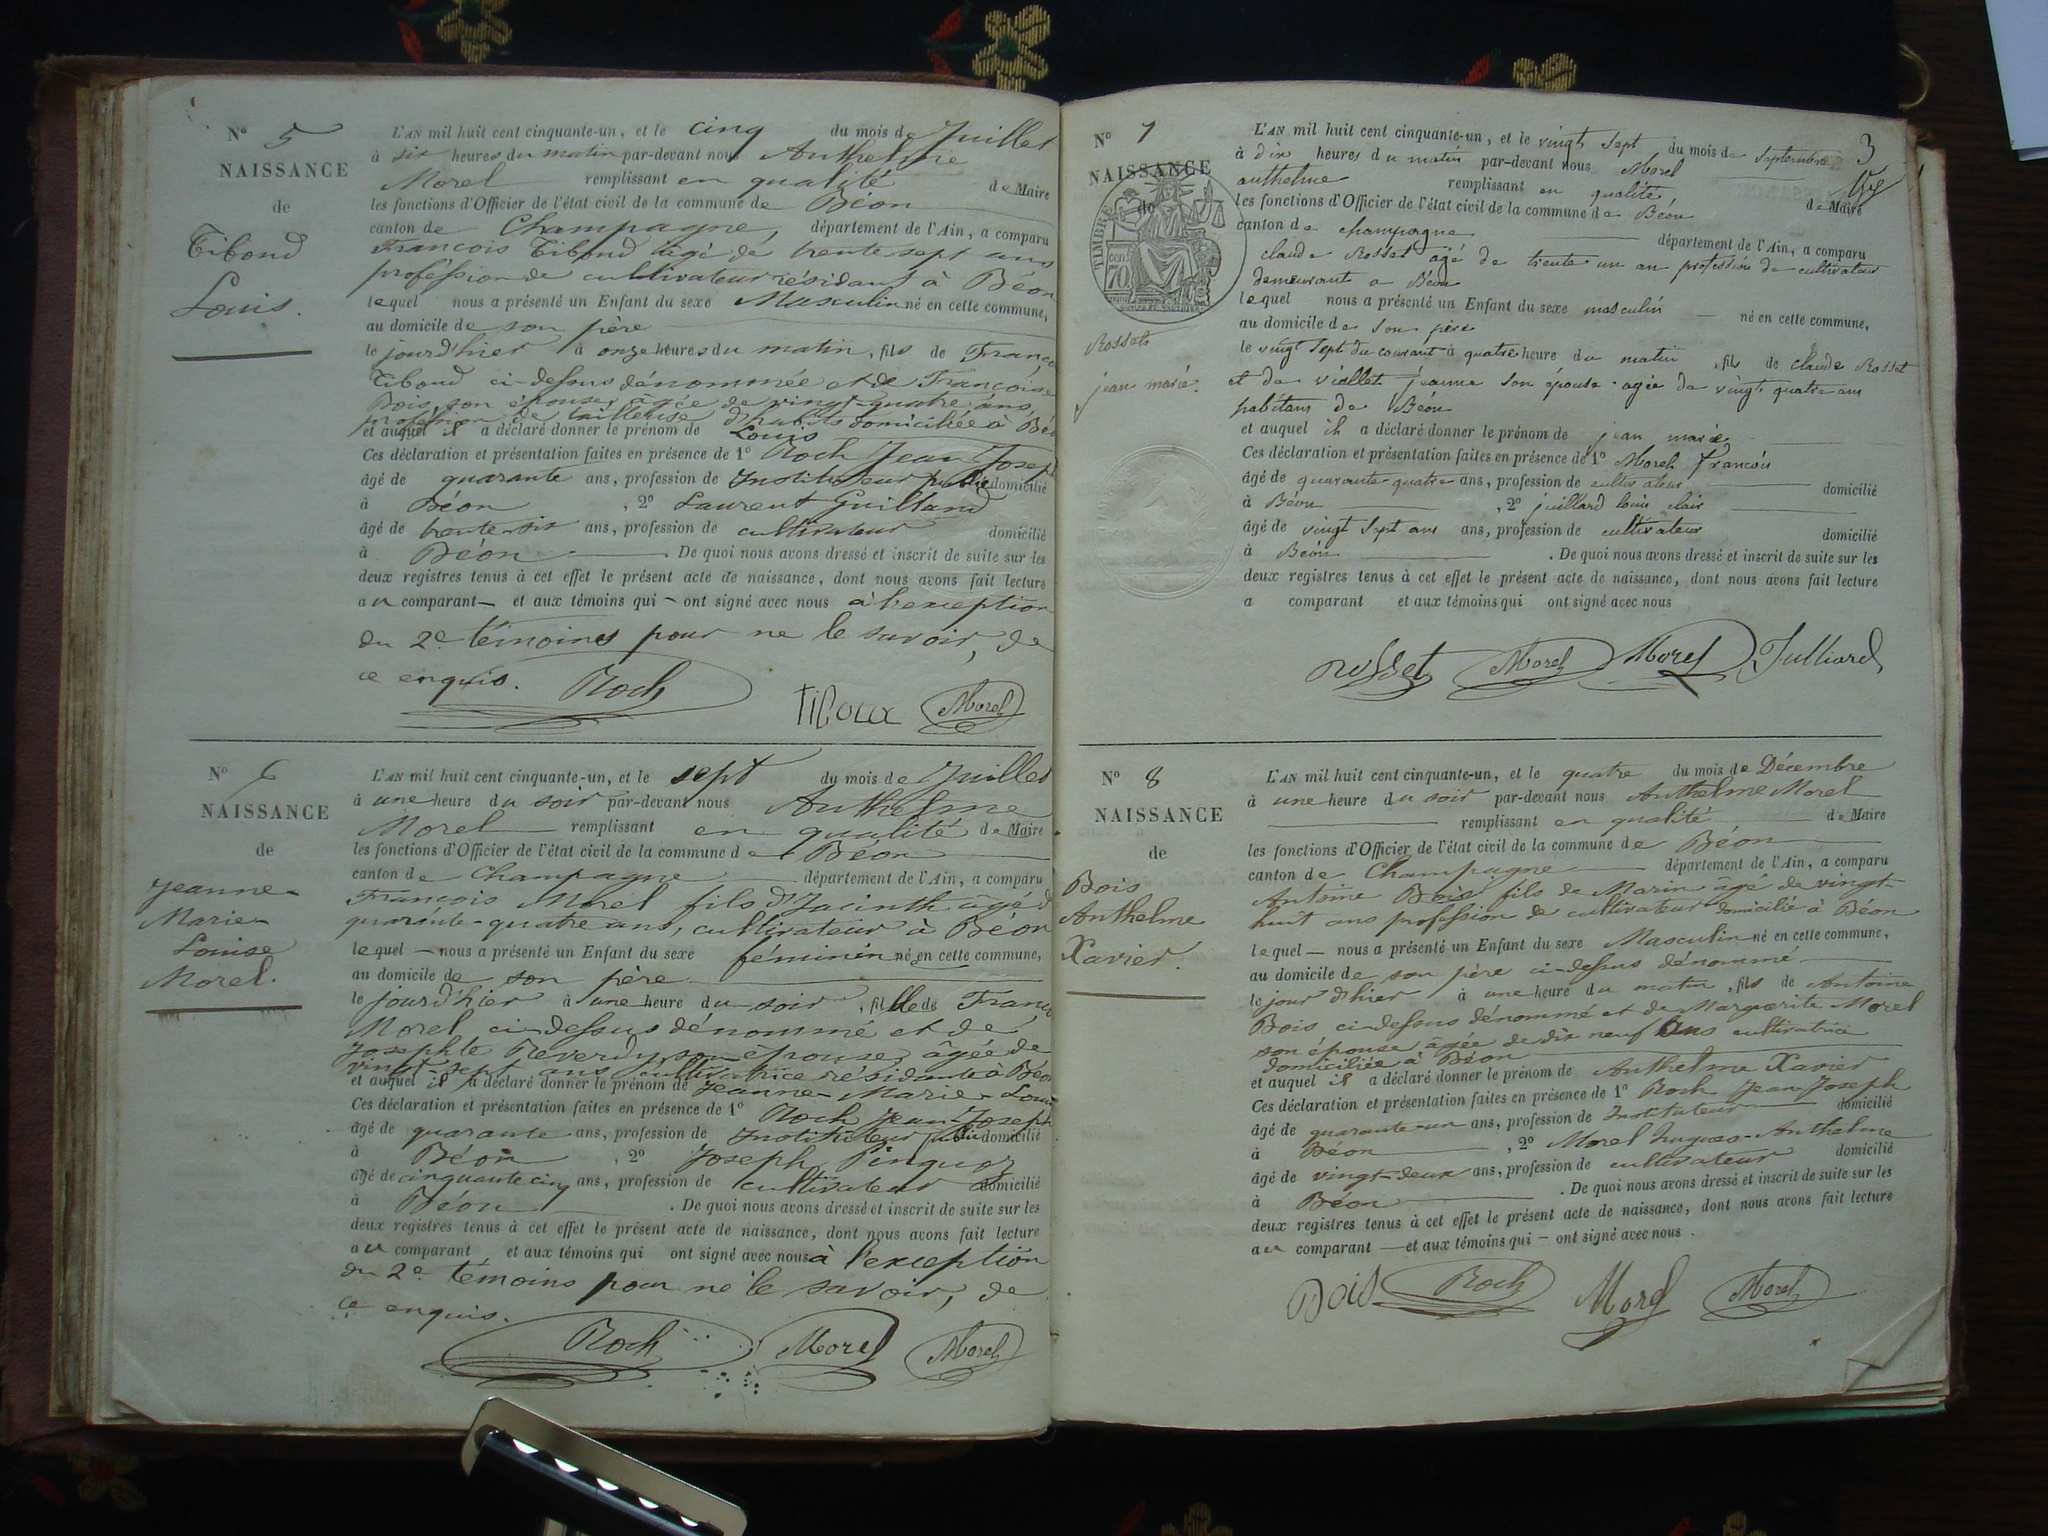 N° 5
NAISSANCE
de
Tiboud
Louis.
L'AN mil huit cent cinquante-un, et le cinq du mois de Juillet
à six heures du matin par-devant nous Anthelme
Morel remplissant en qualité de Maire
les fonctions d'Officier de l'état civil de la commune de Béon
canton de Champagne, département de l'Ain, a comparu
François Tiboud âgé de trente sept ans
proféssion de cultivateur résidant à Béon
lequel nous a présenté un Enfant du sexe Masculin né en cette commune,
au domicile de son père
le jourd'hier à onze heures du matin, fils de Franço
Tiboud ci-dessus dénommée et de Françoise
Bois, son épouse, âgée de vingt-quatre ans,
profession de tailleuse d'habits domiciliée à Béo
et auquel il a déclaré donner le prénom de Louis
Ces déclaration et présentation faites en présence de 1° Roch Jean Joseph
âgé de quarante ans, profession de Instituteur public domicilié
à Béon, 2° Laurent Guilland
âgé de trente six ans, profession de cultivateur domicilié
à Béon. De quoi nous avons dressé et inscrit de suite sur les
deux registres tenus à cet effet le présent acte de naissance, dont nous avons fait lecture
au comparant — et aux témoins qui - ont signé avec nous à l'exception
du 2e témoins pour ne le savoir, de
ce enquis. Roch
Morel
N° 6
NAISSANCE
de
Jeanne-
Marie-
Louise
Morel.
L'AN mil huit cent cinquante-un, et le sept du mois de Juillet
à une heure du soir par-devant nous Anthelme
Morel remplissant en qualité de Maire
les fonctions d'Officier de l'état civil de la commune de Béon
canton de Champagne département de l'Ain, a comparu
François Morel fils d'Jacinth âgé d
quarante-quatre ans, cultivateur à Béon
lequel — nous a présenté un Enfant du sexe féminin né en cette commune,
au domicile de son père
le jourd'hier à une heure du soir, fille de Franço
Morel, ci-dessus dénommé et de
Josephte Reverdy son épouse, âgée de
vingt-sept ans cultivatrice résidante à Béon
et auquel il a déclaré donner le prénom de Jeanne-Marie-Louis
Ces déclaration et présentation faites en présence de 1° Roch Jean-Joseph
âgé de quarante ans, profession de Instituteur public domicilié
à Béon, 2° Joseph Pinguoz
âgé de cinquante cinq ans, profession de cultivateur domicilié
à Béon. De quoi nous avons dressé et inscrit de suite sur les
deux registres tenus à cet effet le présent acte de naissance, dont nous avons fait lecture
au comparant, et aux témoins qui ont signé avec nous à l'exception
du 2e témoins pour ne le savoir, de
ce enquis.
Roch Morel Morel
3
N° 7
NAISSANCE
de
TIMBRE
70 cen
Rosset
jean marie.
L'AN mil huit cent cinquante-un, et le vingt sept du mois de Septembre
à dix heures du matin par-devant nous Morel
anthelme remplissant en qualité de Maire
les fonctions d'Officier de l'état civil de la commune de Béon
canton de champagne département de l'Ain, a comparu
claude Rosset âgé de trente un an proféssion de cultivateur
demeurant a Béon
lequel nous a présenté un Enfant du sexe masculin — né en cette commune,
au domicile de son père
le vingt sept du courant à quatre heure du matin, fils de claude Rosset
et de viallet jeanne son épouse agée de vingt quatre ans
habitans de Béon
et auquel il a déclaré donner le prénom de jean marie
Ces déclaration et présentation faites en présence de 1° Morel François
âgé de quarante quatre ans, profession de cultivateur domicilié
à Béon, 2° juillard louis clair
âgé de vingt sept ans ans, profession de cultivateur domicilié
à Béon. De quoi nous avons dressé et inscrit de suite sur les
deux registres tenus à cet effet le présent acte de naissance, dont nous avons fait lecture
a comparant et aux témoins qui ont signé avec nous
rosset Morel Morel Julliard
N° 8
NAISSANCE
de
Bois
Anthelme
Xavier.
L'AN mil huit cent cinquante-un, et le quatre du mois de Décembre
à une heure du soir par-devant nous Anthelme Morel
remplissant en qualité de Maire
les fonctions d'Officier de l'état civil de la commune de Béon
canton de Champagne département de l'Ain, a comparu
Antoine Bois fils de Marin âgé de vingt-
huit ans profession de cultivateur domicilié à Béon
lequel — nous a présenté un Enfant du sexe Masculin né en cette commune,
au domicile de son père ci-dessus dénommé
le jour d'hier à une heure du matin, fils de Antoine
Bois ci-dessus dénommé et de Marguerite Morel
son épouse âgée de dix neuf ans cultivatrice
domiciliée à Béon
et auquel il a déclaré donner le prénom de Anthelme Xavier
Ces déclaration et présentation faites en présence de 1° Roch Jean Joseph
âgé de quarante-un ans, profession de Instituteur domicilié
à Béon, 2° Morel hugues-Anthelme
âgé de vingt-deux ans, profession de cultivateur domicilié
à Béon. De quoi nous avons dressé et inscrit de suite sur les
deux registres tenus à cet effet le présent acte de naissance, dont nous avons fait lecture
au comparant — et aux témoins qui - ont signé avec nous.
Bois Roch Morel Morel